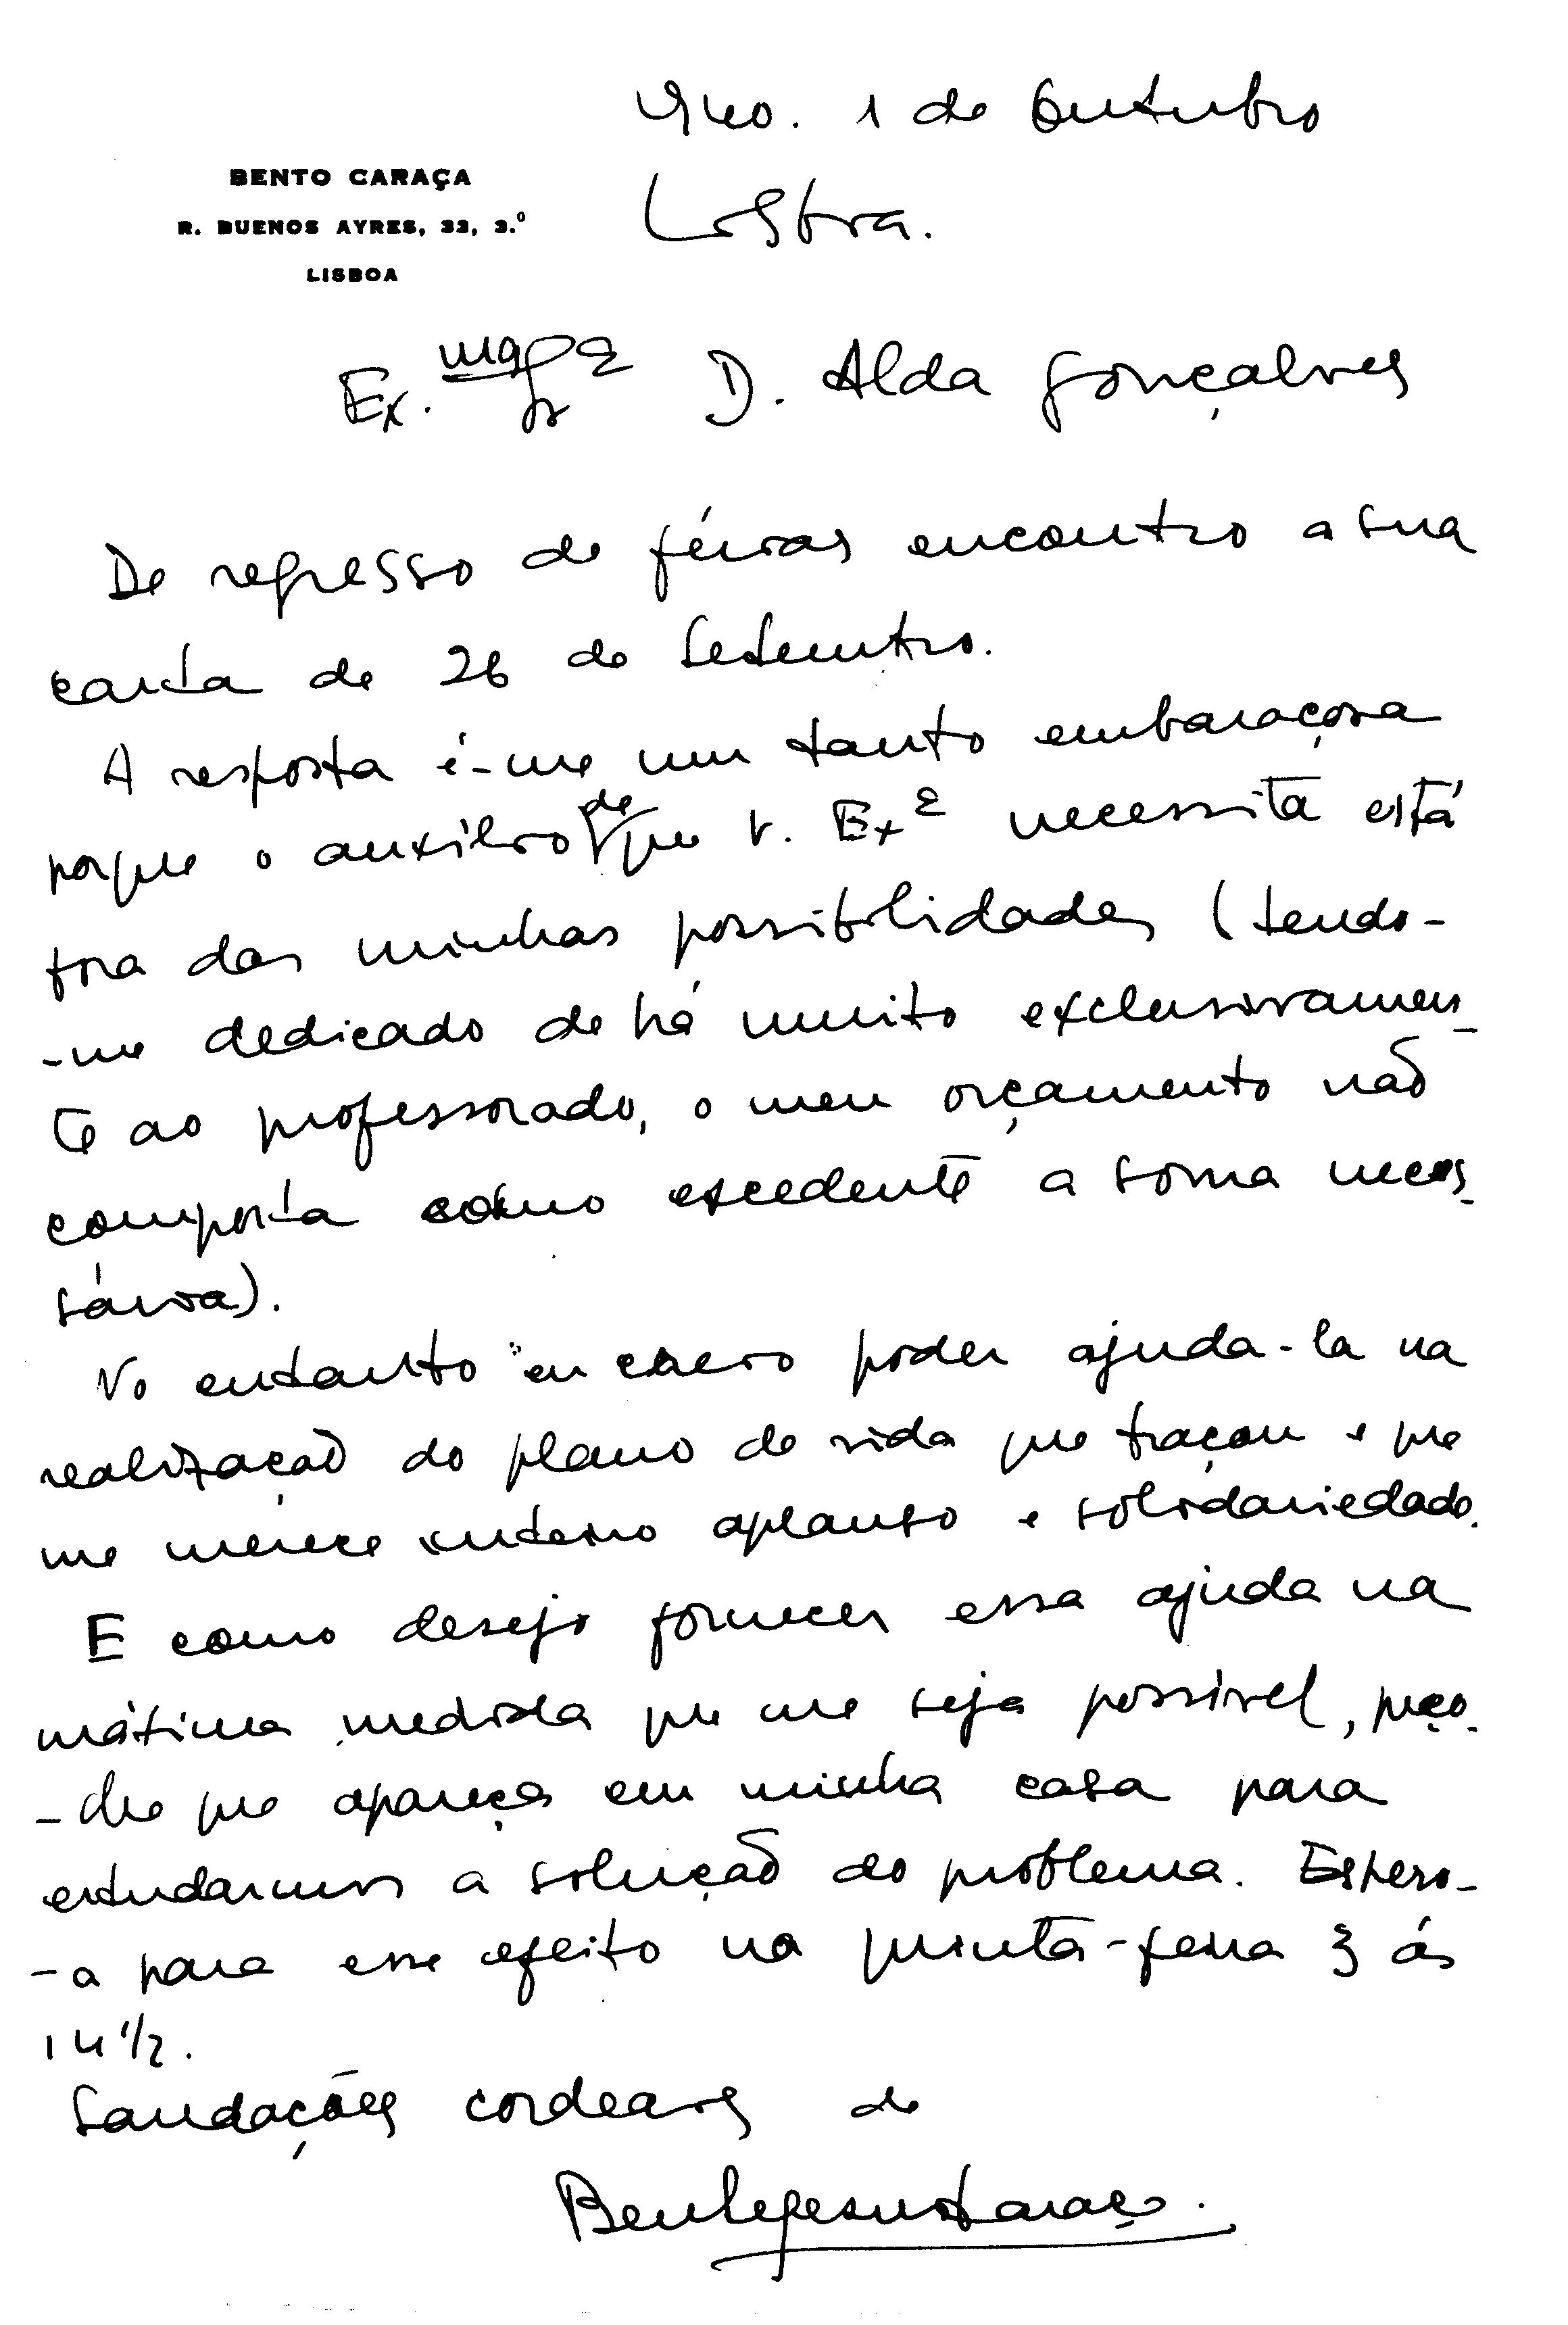 1940. 1 de Outubro
BENTO CARAÇA
R. BUENOS AYRES, 33, 3.º
LISBOA
Lisboa.
Ex.ma Sr.ª D. Alda Gonçalves
De regresso de férias encontro a sua
carta de 26 de Setembro.
A resposta é-me um tanto embaraçosa
porque o auxílio de que V. Exª necessita está
fora das minhas possibilidades (tendo-
-me dedicado de há muito exclusivamen-
te ao professorado, o meu orçamento não
comporta como excedente a soma neces-
sária).
No entanto eu quero poder ajuda-la na
realização do plano de vida que traçou e que
me merece inteiro aplauso e solidariedade.
E como desejo fornecer essa ajuda na
máxima medida que me seja possível, peço-
-lhe que apareça em minha casa para
estudarmos a solução do problema. Espero-
-a para esse efeito na quinta-feira 3 ás
14 1/2.
Saudações cordeais de
Bento Jesus Caraça.